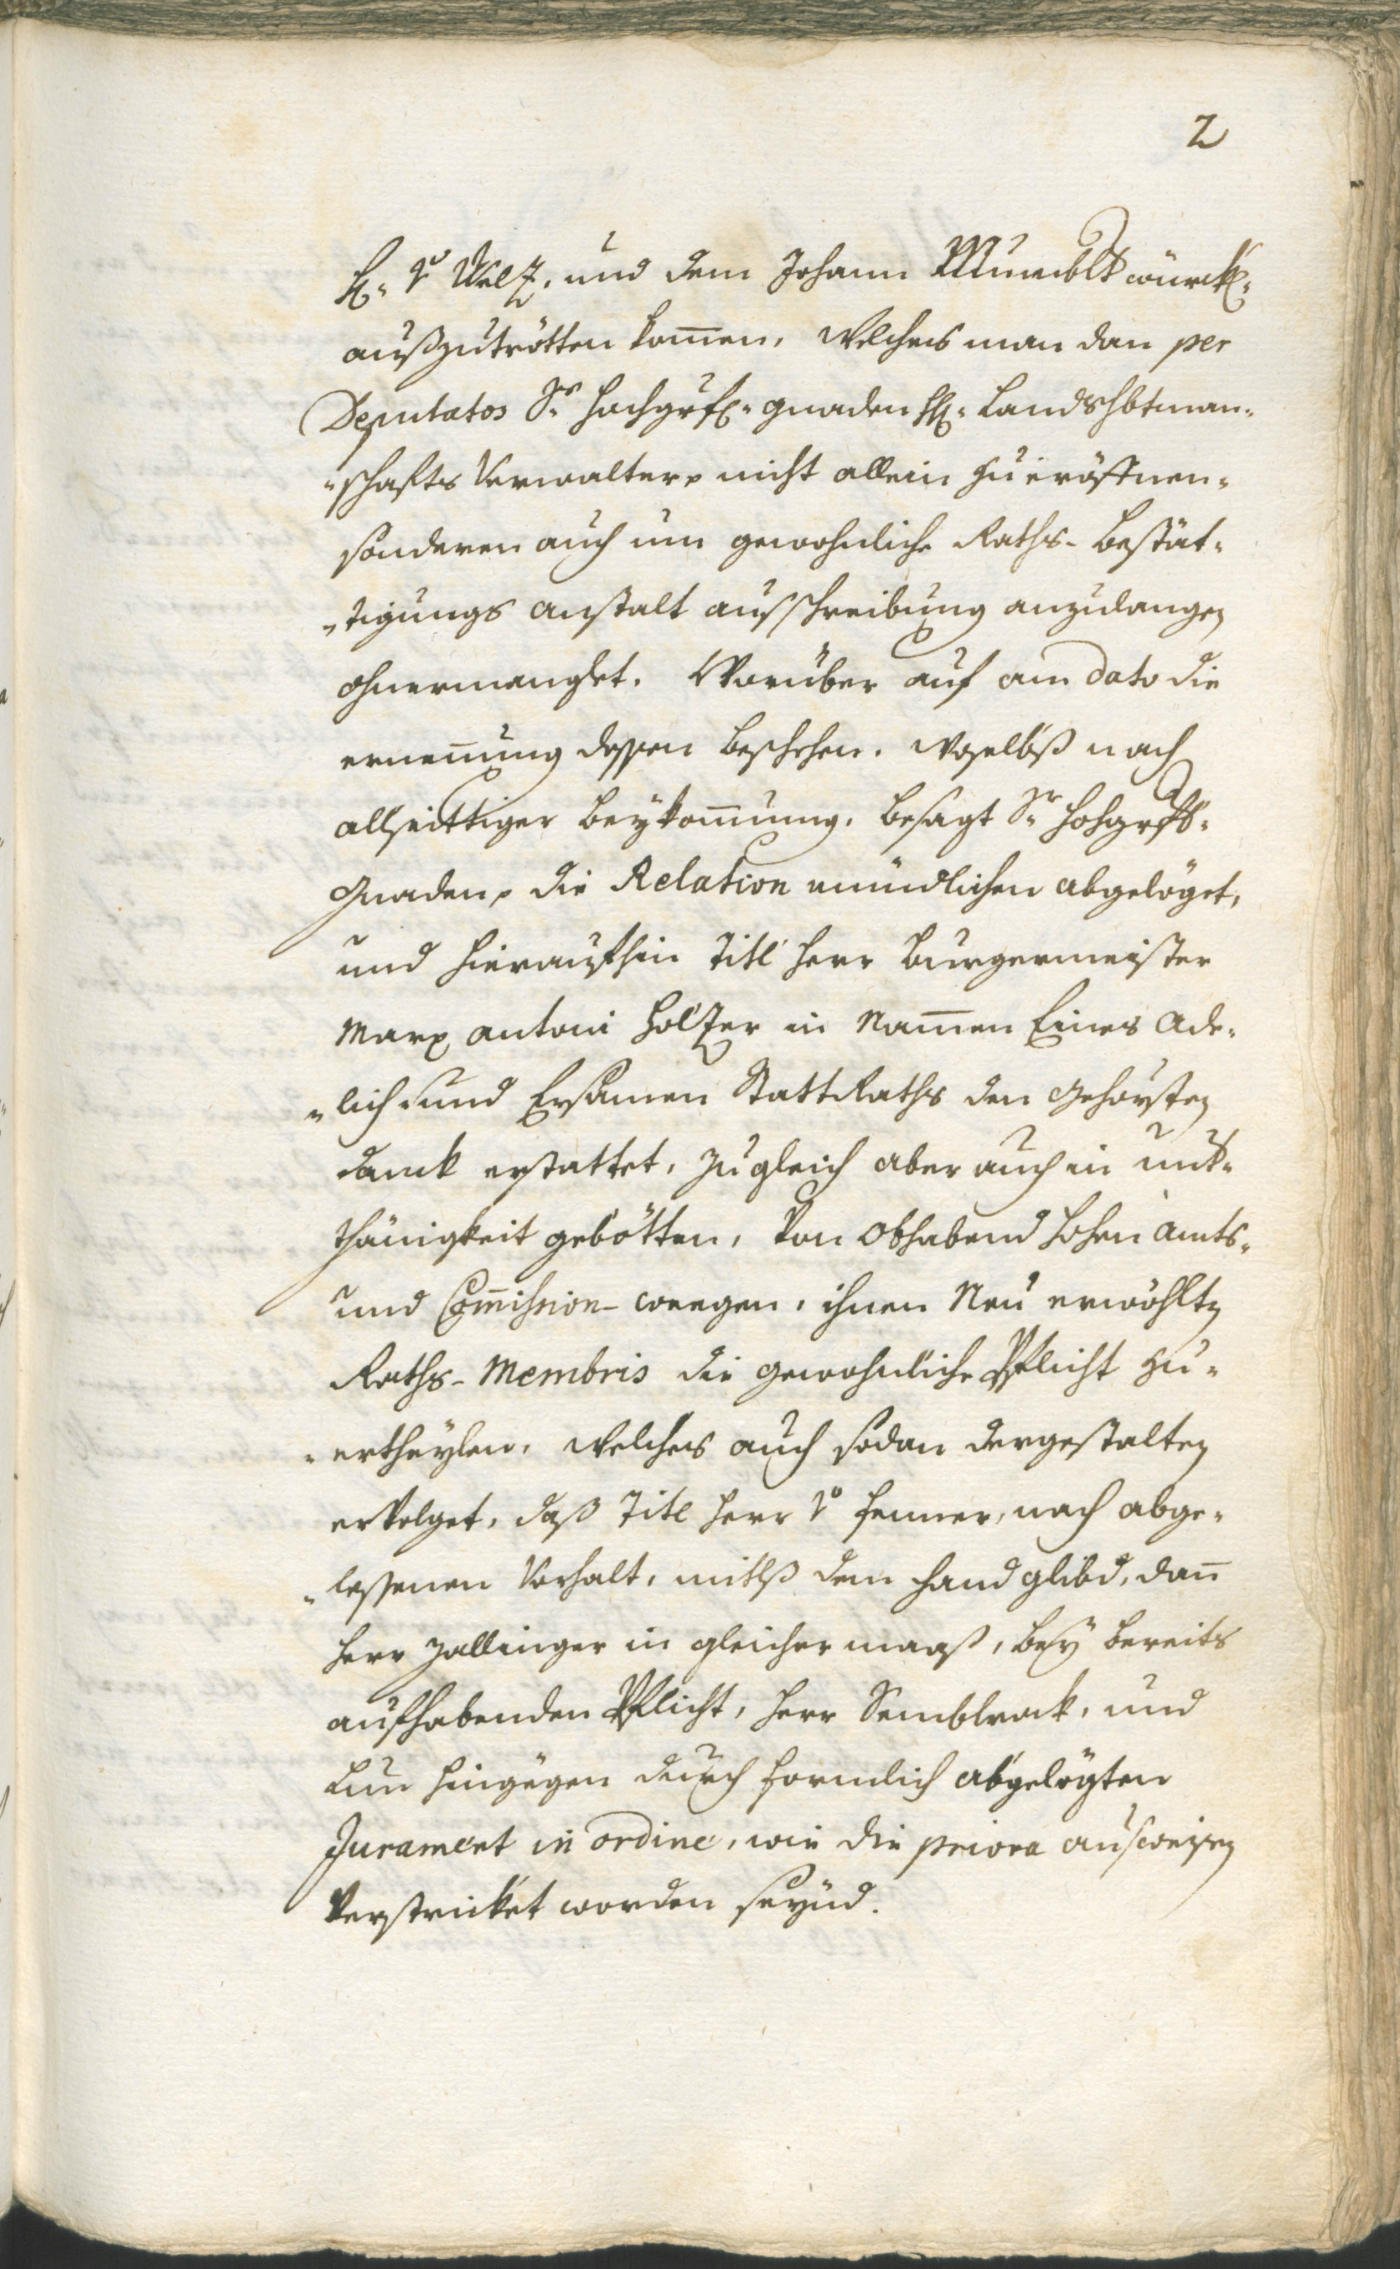 2
H: v Welz, und dem Johann würckl:
außzutrötten komen, welches man dan per
Deputatos Sr hochgräfl: gnaden H: Landshbtman-
schafts Verwalter nicht allein zu eröffnen,
sonderen auch um gewohnliche Raths-bestät-
tigungs anstalt ausschreibung anzulangen
ohnermanglet. Worüber auf am dato die
ernenung dessen beschehen. woselbß nach
allseittiger beykommung, besagt Sr hochgräfl:
Gnaden die Relation mündlichen abgelöget,
und hieraufhin Titl Herr Burgermeister
Marx antoni Holzer in Namen Eines Ade-
lich- und Ersamen StattRaths den gehorsten
danck erstattet, zugleich aber auch in unt-
thänigkeit gebötten, von obhabend hohen amts-
und Commission-weegen, ihnen Neu erwöhlten
Raths-Membris die gewohnliche Pflicht zu-
ertheylen, welches auch sodan dergestalten
ervolget, daß Titl Herr v fenner, nach abge-
lessenen Vorhalt, mitlß dem handglibd, dan
Herr Zallinger in gleicher maaß, bey bereits
aufhabenden Pflicht, Herr Semblrock, und
hingegen durch formlich abgelögten
Jurament in ordine, wie die priora ausweisen
verstricket worden seynd.